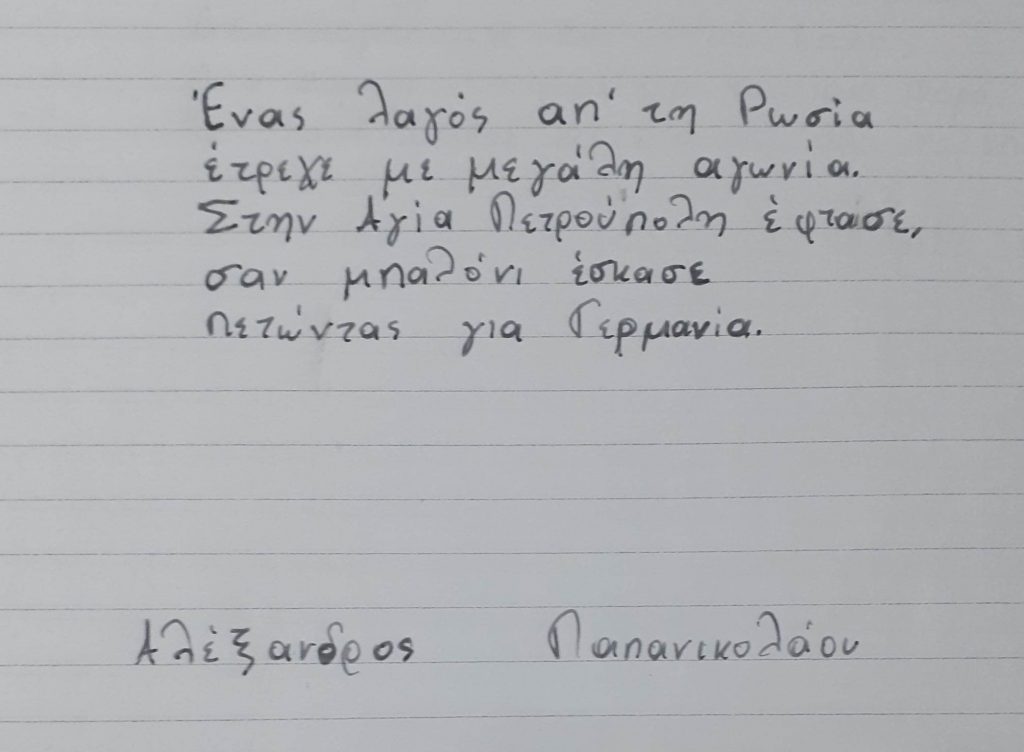 Ένας λαγός απ' τη Ρωσία
έτρεχε με μεγάλη αγωνία.
Στην Αγία Πετρούπολη έφτασε,
σαν μπαλόνι έσκασε
πετώντας για Γερμανία.
Αλέξανδρος Παπανικολάου